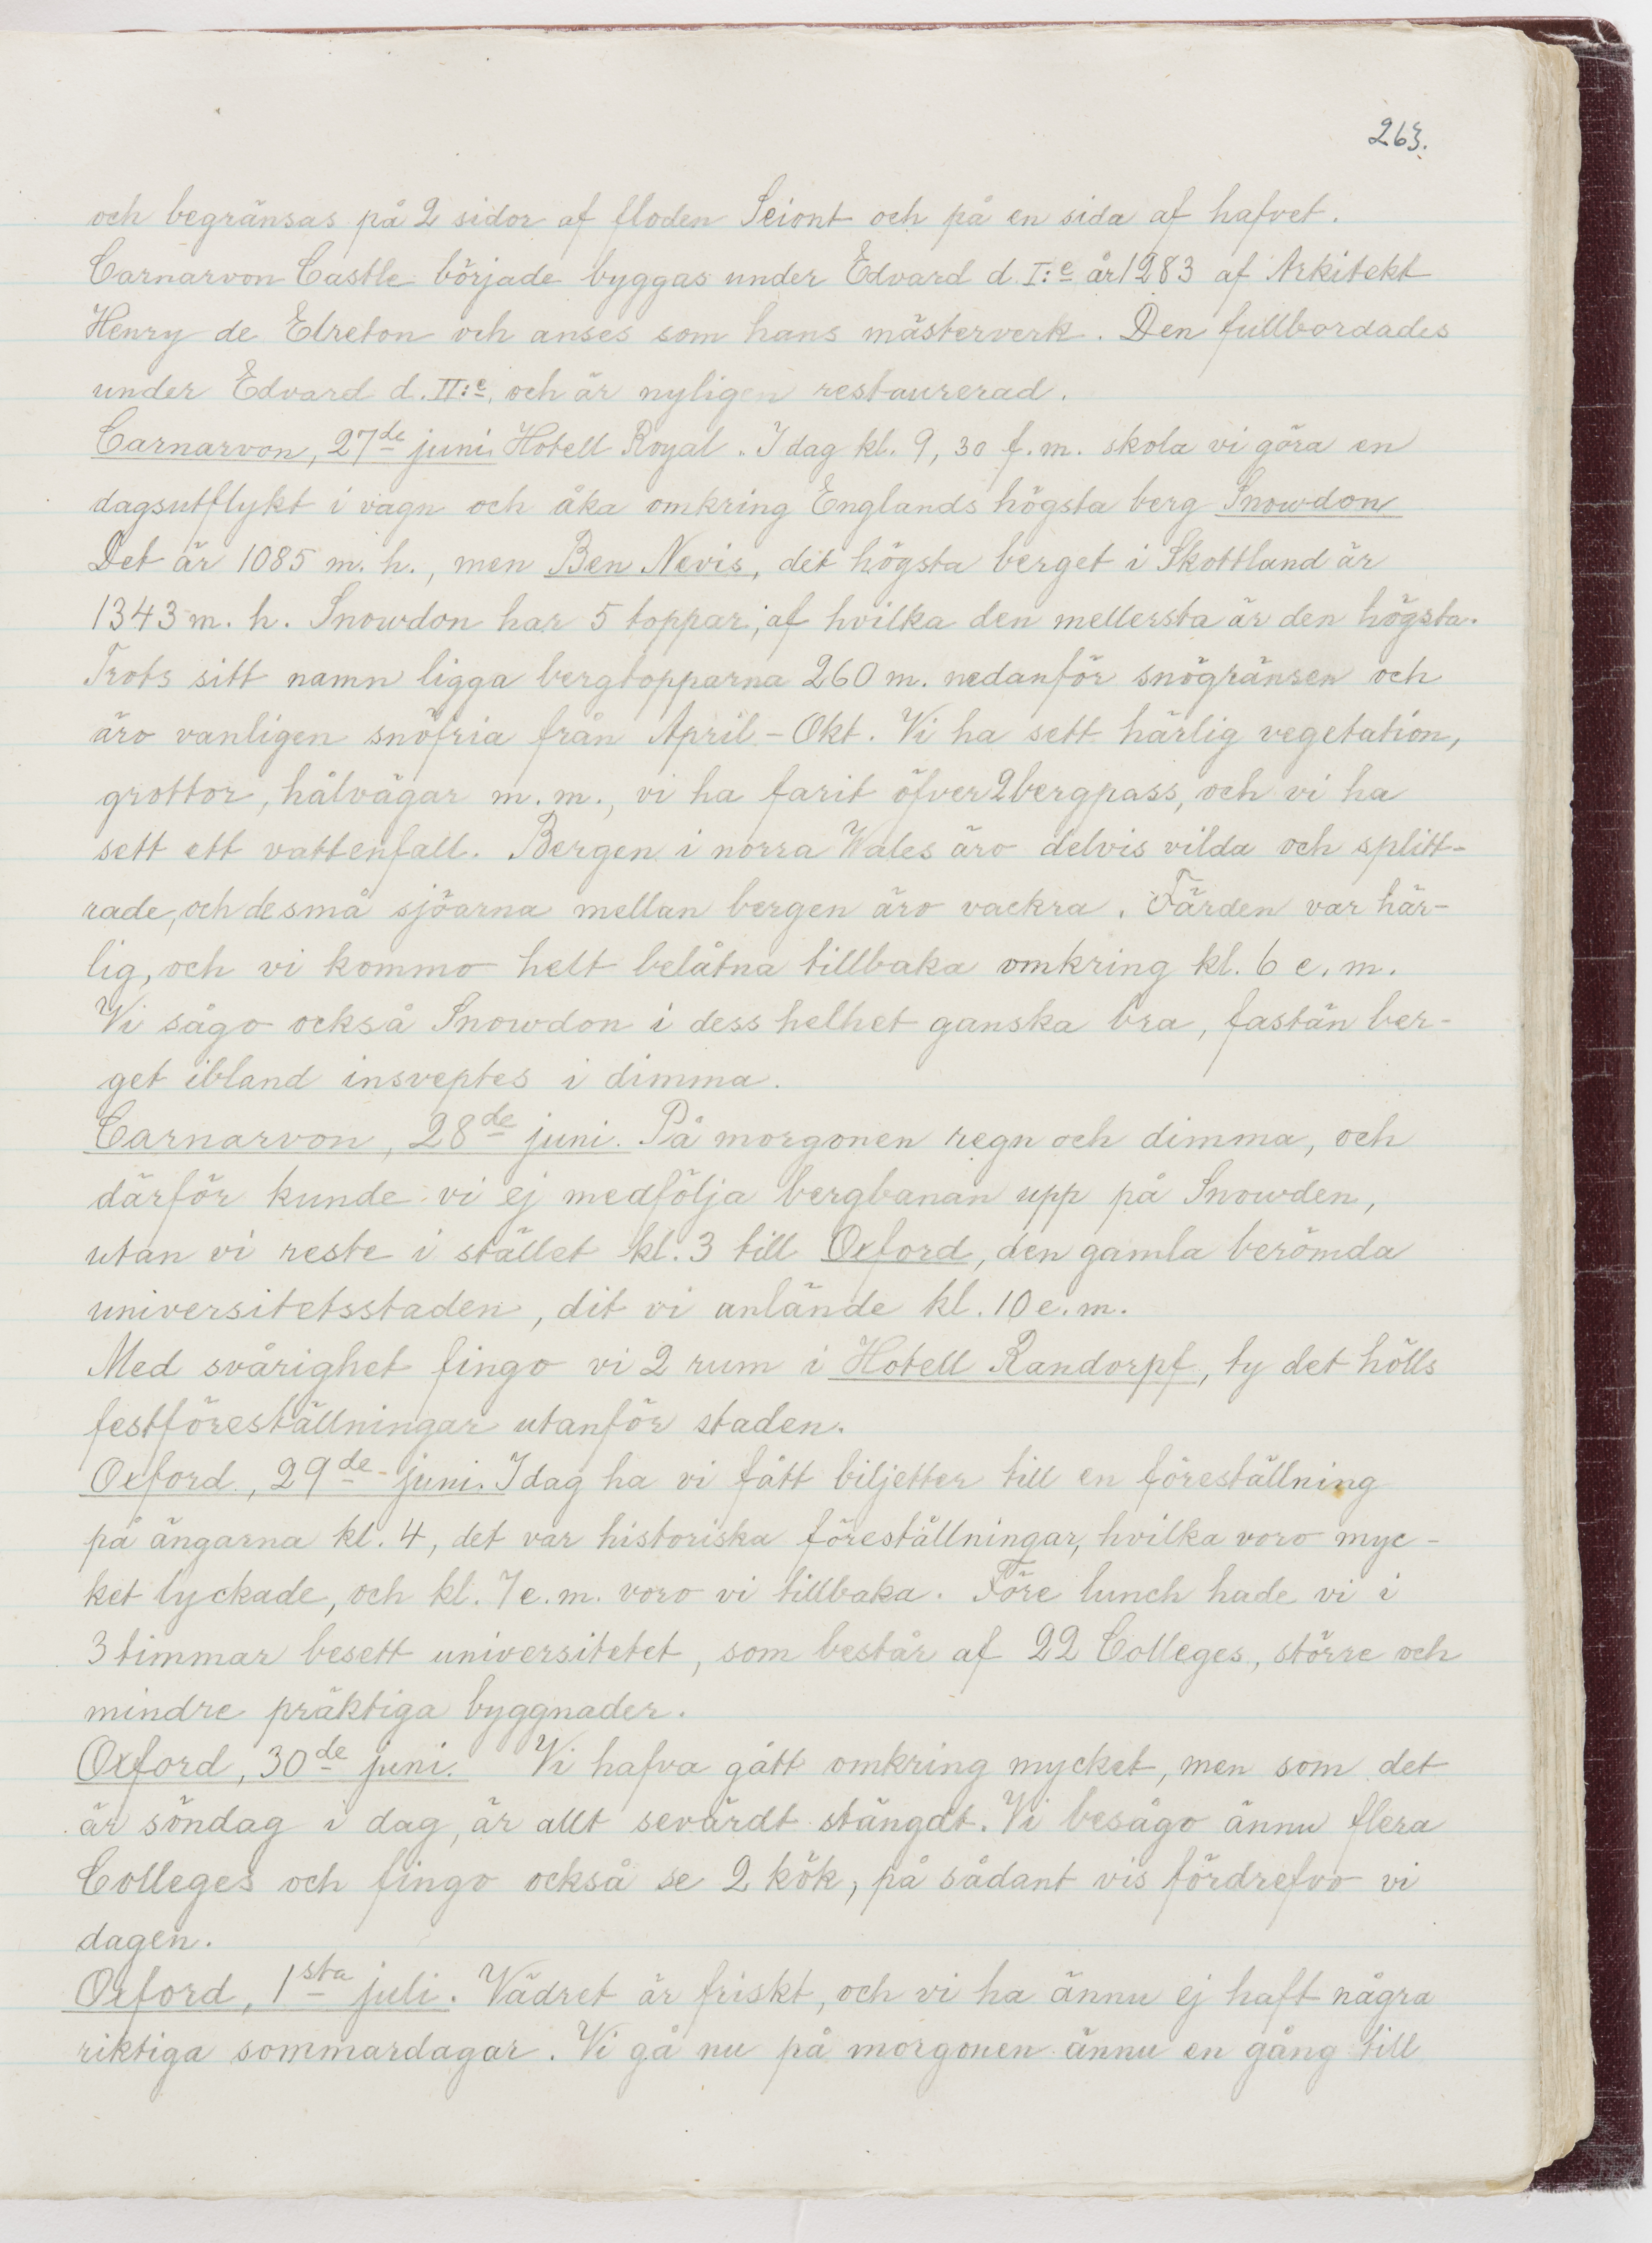 263.
och begränsas på 2 sidor af floden Seiont och på en sida af hafvet.
Carnarvon Castle började byggas under Edvard d. I:e år 1283 af Arkitekt
Henry de Elreton och anses som hans mästerverk. Den fullbordades
under Edvard d. II:e, och är nyligen restaurerad.
Carnarvon, 27de juni. Hotell Royal. I dag kl. 9,30 f.m. skola vi göra en
dagsutflykt i vagn och åka omkring Englands högsta berg Snowdon
Det är 1085 m. h., men Ben Nevis, det högsta berget i Skottland är
1343 m. h. Snowdon har 5 toppar, af hvilka den mellersta är den högsta.
Trots sitt namn ligga bergtopparna 260 m. nedanför snögränsen och
äro vanligen snöfria från April - Okt. Vi ha sett härlig vegetation,
grottor, hålvägar m. m., vi ha farit öfver 2 bergpass, och vi ha
sett ett vattenfall. Bergen i norra Wales äro delvis vilda och splitt-
rade, och de små sjöarna mellan bergen äro vackra. Färden var här-
lig, och vi kommo helt belåtna tillbaka omkring kl. 6 e. m.
Vi sågo också Snowdon i dess helhet ganska bra, fastän ber-
get ibland insveptes i dimma.
Carnarvon, 28de juni. På morgonen regn och dimma, och
därför kunde vi ej medfölja bergbanan upp på Snowden,
utan vi reste i stället kl. 3 till Oxford, den gamla berömda
universitetsstaden, dit vi anlände kl. 10 e. m.
Med svårighet fingo vi 2 rum i Hotell Randorpf, ty det hölls
festföreställningar utanför staden.
Oxford, 29de juni. I dag ha vi fått biljetter till en föreställning
på ängarna kl. 4, det var historiska föreställningar, hvilka voro myc-
ket lyckade, och kl. 7 e. m. voro vi tillbaka. Före lunch hade vi i
3 timmar besett universitetet, som består af 22 Colleges, större och
mindre präktiga byggnader.
Oxford, 30de juni. Vi hafva gått omkring mycket, men som det
är söndag i dag, är allt sevärdt stängdt. Vi besågo ännu flera
Colleges och fingo också se 2 kök, på sådant vis fördrefvo vi
dagen.
Oxford, 1sta juli. Vädret är friskt, och vi ha ännu ej haft några
riktiga sommardagar. Vi gå nu på morgonen ännu en gång till